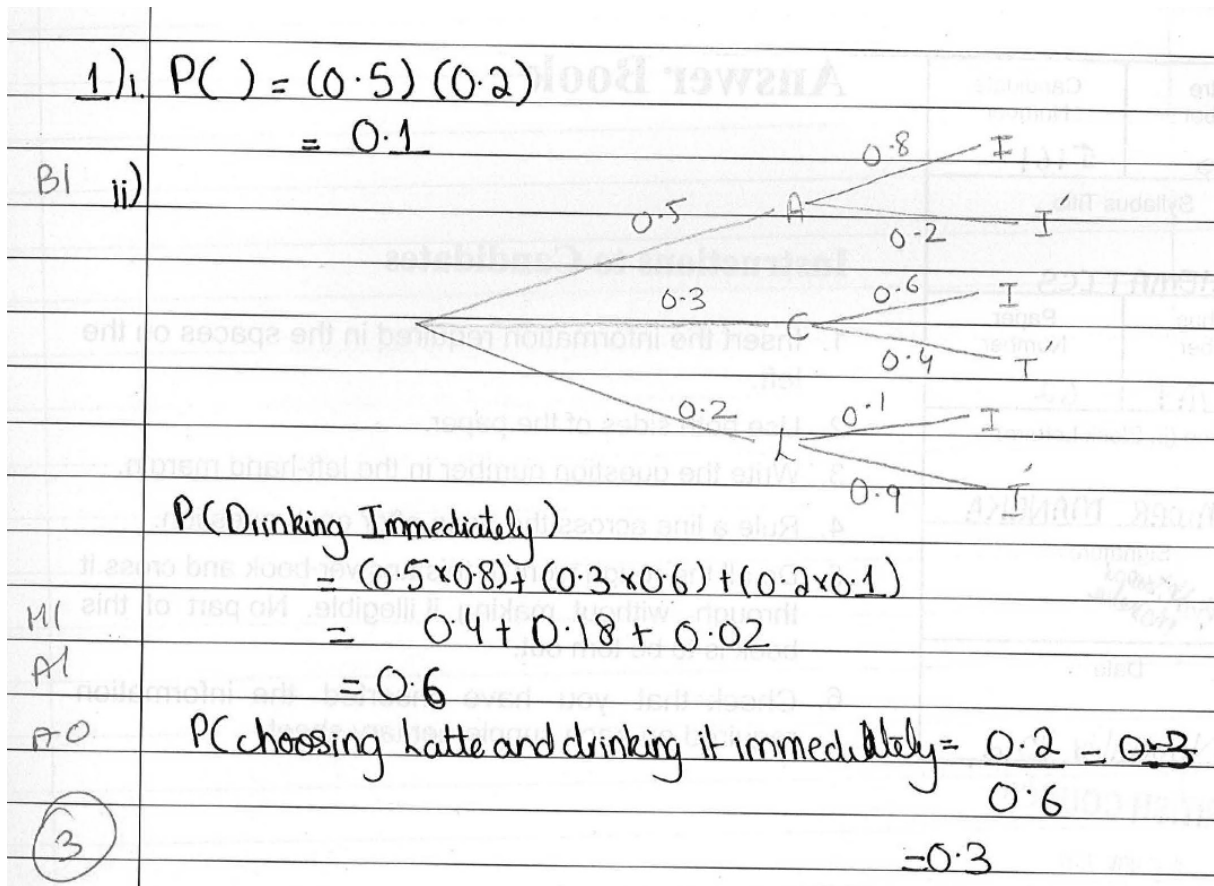 1)i. P( ) = (0.5) (0.2)
= 0.1
B1 ii)
0.8 I
0.5 A
0.2 I
0.3 C 0.6 I
0.4 I
0.2 L 0.1 I
0.9 I'
P(Drinking Immediately)
= (0.5×0.8)+(0.3×0.6)+(0.2×0.1)
M1 = 0.4+0.18+0.02
A1 = 0.6
A0 P(choosing Latte and drinking it immediately = 0.2/0.6
3 =0.3